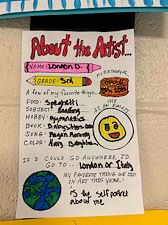 About the Artist...
NAME: London D.
GRADE: 3rd
A few of my favorite things...
FOOD: Spaghetti
SUBJECT: Reading
HOBBY: Gymnastics
BOOK: Babysitters
SONG:
COLOR: Navy,
ME
AS AN EMOJI
IF I COULD GO ANYWHERE I'D
GO TO... London or Italy
MY FAVORITE THING WE DID
IN ART THIS YEAR:
is the self portrait
about me